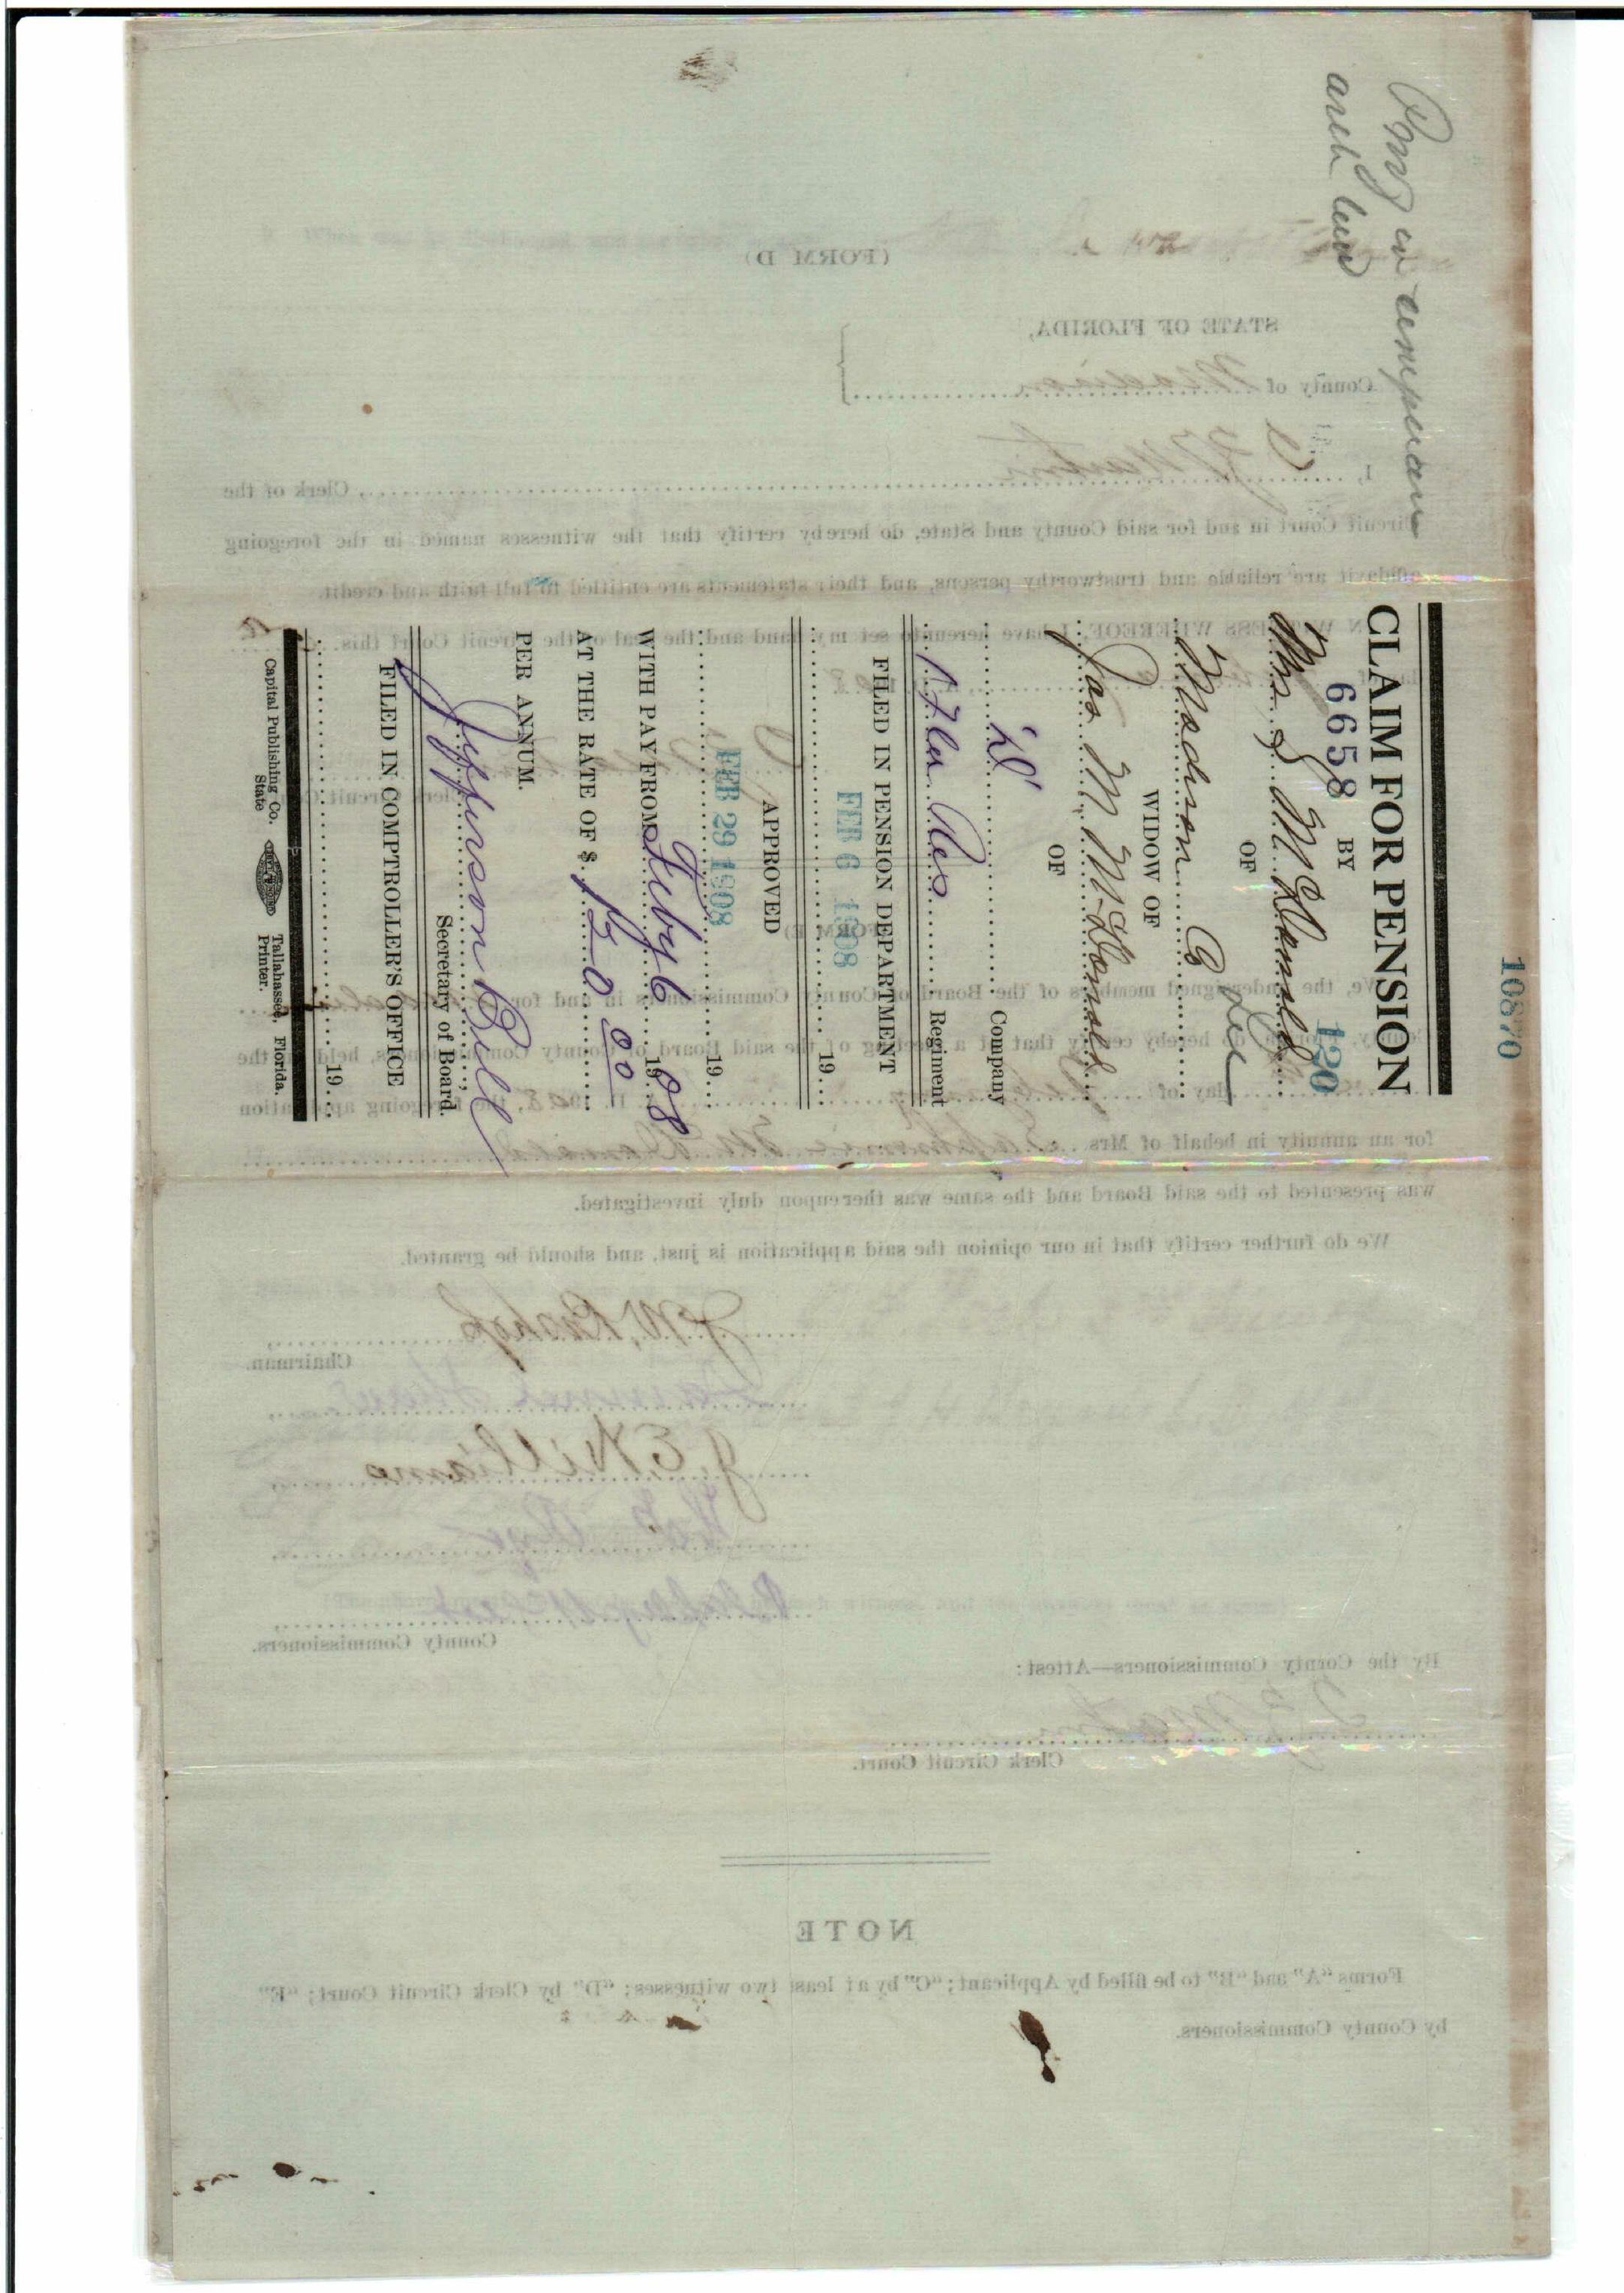 10870
CLAIM FOR PENSION
6658 BY 120
Mrs S McDaniel
OF
Madison Co
WIDOW OF
Jas M McDaniel
OF
'D' Company
1 Fla Res Regiment
FILED IN PENSION DEPARTMENT
FEB 6 1908
19
APPROVED
FEB 29 1908
19
WITH PAY FROM Feby 6 1908
AT THE RATE OF $ 120 00
PER ANNUM.
Jefferson B Bell
Secretary of Board.
FILED IN COMPTROLLER'S OFFICE
19
Capital Publishing Co. Tallahassee, Florida.
State Printer.
(FORM D)
STATE OF FLORIDA,
County of Madison
I, Martin, Clerk of the
Circuit Court in and for said County and State, do hereby certify that the witnesses named in the foregoing
affidavit are reliable and trustworthy persons, and their statements are entitled to full faith and credit.
IN WITNESS WHEREOF, I have hereunto set my hand and the seal of the Circuit Court this
We, the undersigned members of the Board of County Commissioners in and for
County, Florida, do hereby certify that at a meeting of the said Board of County Commissioners, held on the
day of 1908, the foregoing application
for an annuity in behalf of Mrs. McDaniel
was presented to the said Board and the same was thereupon duly investigated.
We do further certify that in our opinion the said application is just, and should be granted.
J W Bishop
Chairman.
J. E. Williams
County Commissioners.
By the County Commissioners—Attest:
Martin
Clerk Circuit Court.
NOTE
Forms "A" and "B" to be filled by Applicant; "C" by at least two witnesses; "D" by Clerk Circuit Court; "E"
by County Commissioners.